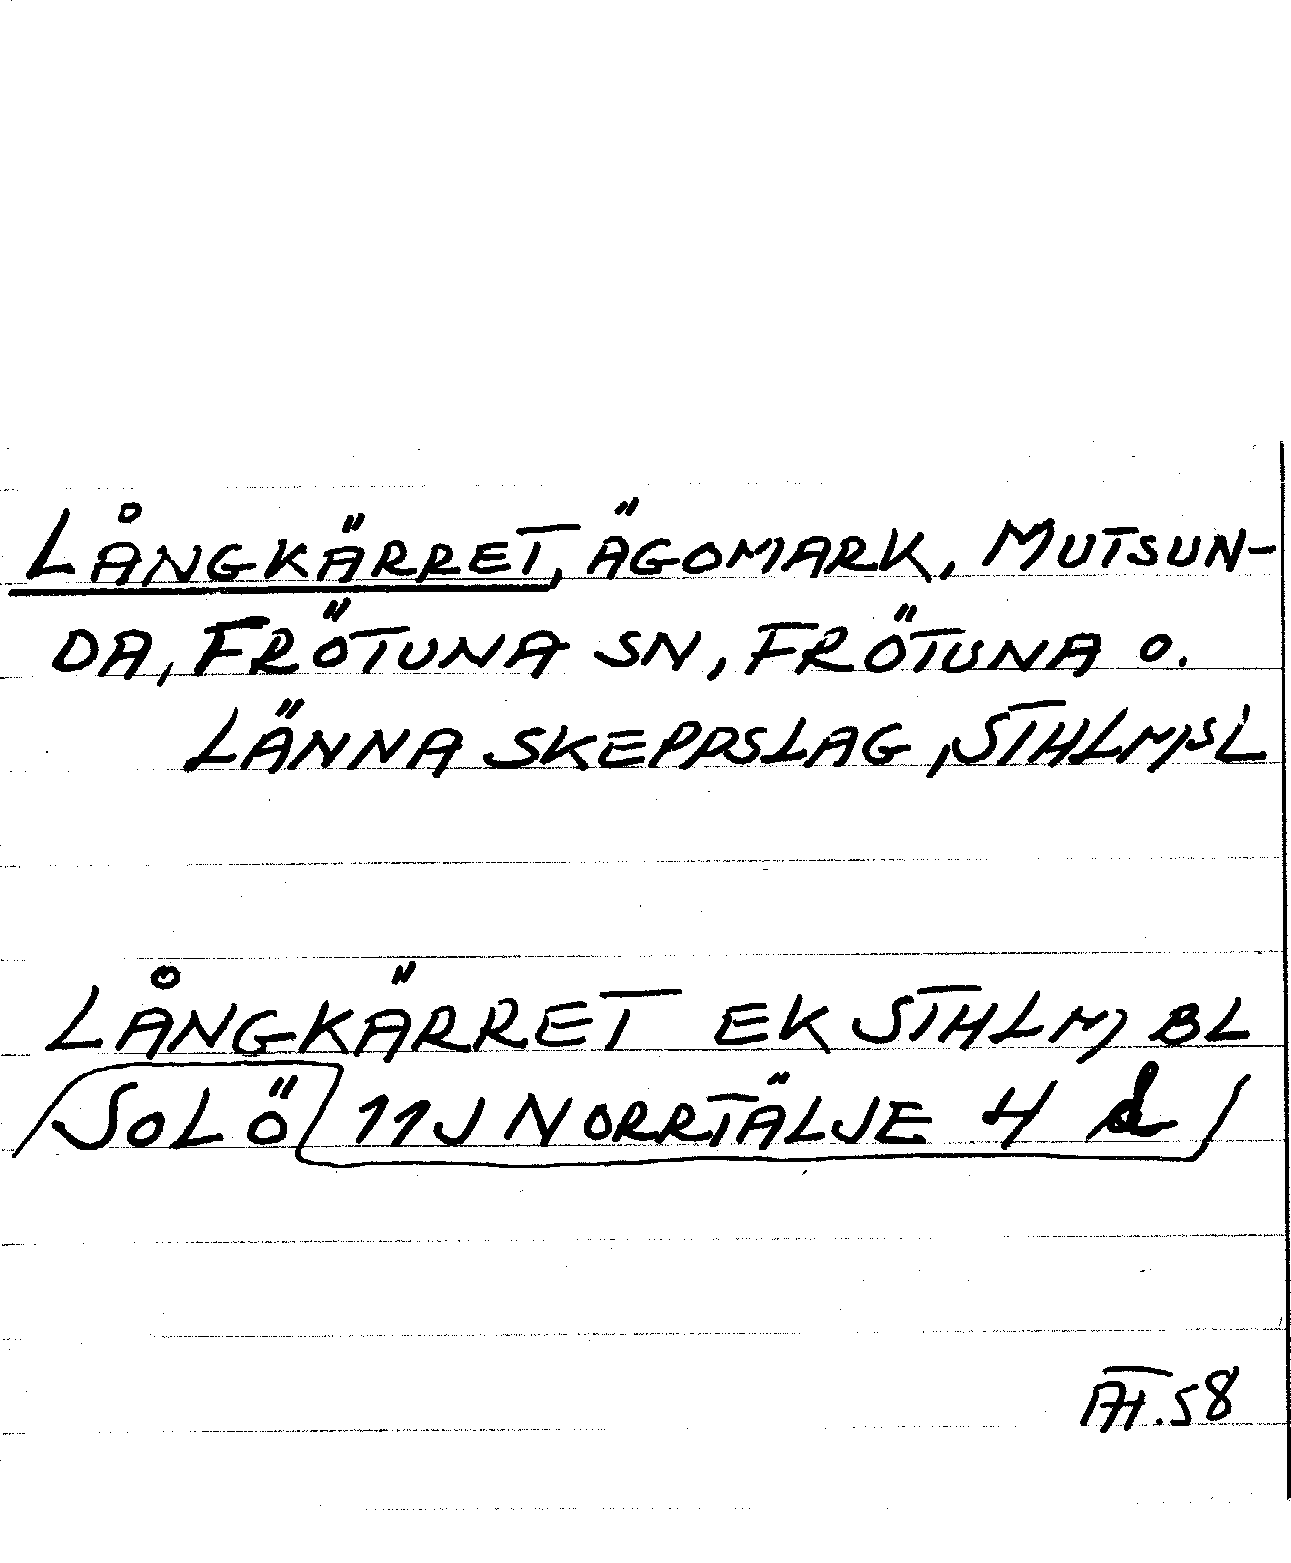 LÅNGKÄRRET, ÄGOMARK, MUTSUN-
DA, FRÖTUNA SN, FRÖTUNA O.
LÄNNA SKEPPSLAG, STHLMSL
LÅNGKÄRRET EK STHLM BL
SOLÖ 11J NORRTÄLJE 4 d
58